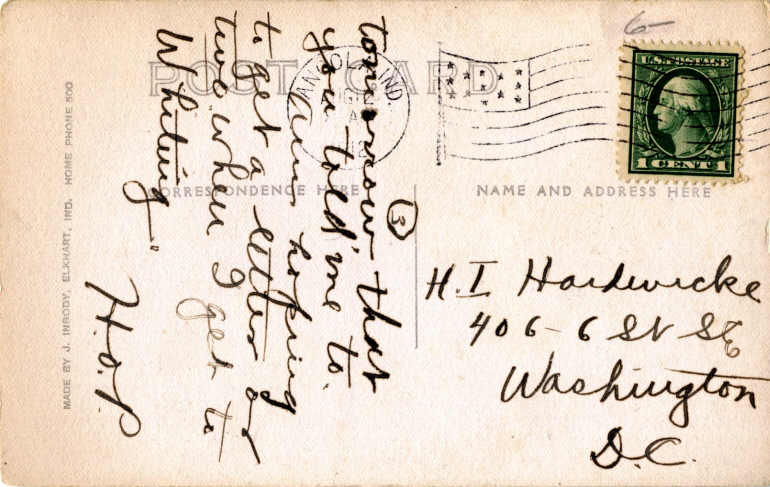 6-
POST CARD
ANGOLA IND.
U.S. POSTAGE
1 CENT 1
CORRESPONDENCE HERE
NAME AND ADDRESS HERE
3
tomorrow that
you told me to.
am hoping
to get a letter or
two when I get to
Whiting"
H.O.P.
H. I Hardwicke
406-6 St SE
Washington
D.C.
MADE BY J. INBODY, ELKHART, IND. HOME PHONE 500